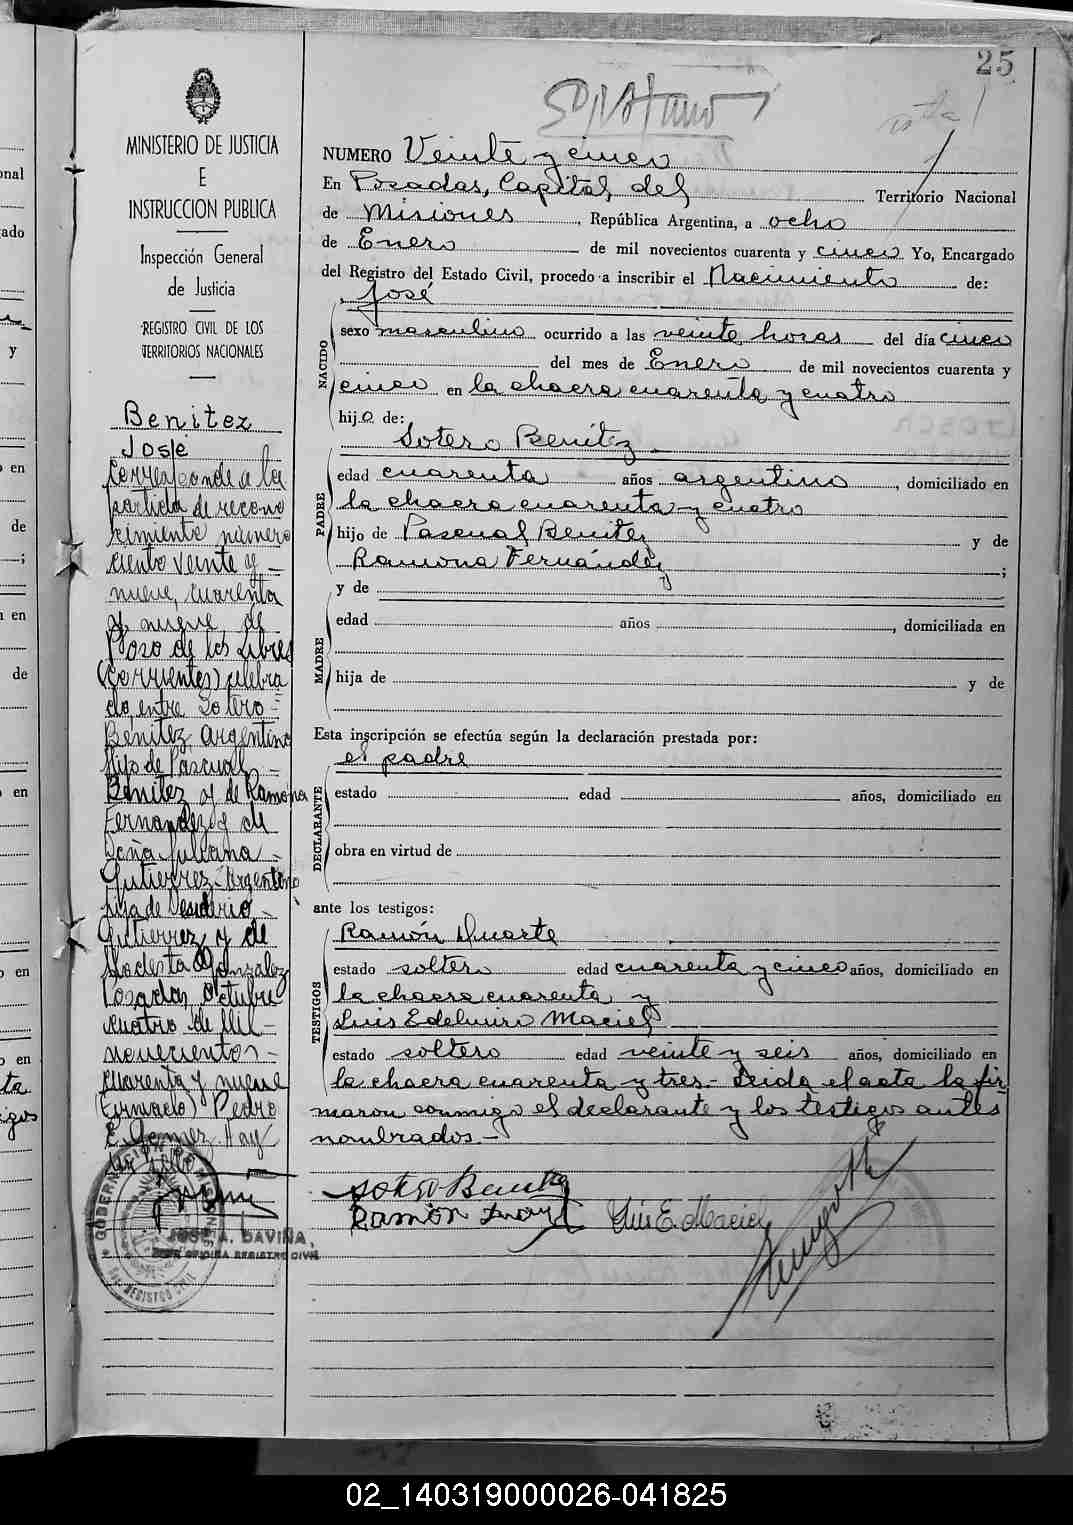 25
NUMERO Veinte y cinco
En Posadas, Capital del Territorio Nacional
de Misiones, República Argentina, a ocho
de Enero de mil novecientos cuarenta y cinco Yo, Encargado
del Registro del Estado Civil, procedo a inscribir el Nacimiento de:
José
NACIDO
sexo masculino ocurrido a las veinte horas del día cinco
del mes de Enero de mil novecientos cuarenta y
cinco en la chacra cuarenta y cuatro
hijo de:
Sotero Benítez
PADRE
edad cuarenta años argentino, domiciliado en
la chacra cuarenta y cuatro
hijo de Pascual Benitez y de
Ramona Fernández;
y de
MADRE
edad años, domiciliada en
hija de y de
Esta inscripción se efectúa según la declaración prestada por:
el padre
DECLARANTE
estado edad años, domiciliado en
obra en virtud de
ante los testigos:
TESTIGOS
Ramón Duarte
estado soltero edad cuarenta y cinco años, domiciliado en
la chacra cuarenta y
Luis Edelmiro Maciel
estado soltero edad veinte y seis años, domiciliado en
la chacra cuarenta y tres.- Leida el acta la fir
maron conmigo el declarante y los testigos antes
nombrados.-
Sotero Benitez
Ramón Luis E. Maciel
MINISTERIO DE JUSTICIA
E
INSTRUCCION PUBLICA
Inspección General
de Justicia
REGISTRO CIVIL DE LOS
TERRITORIOS NACIONALES
Benitez
José
Corresponde a la
partida de recono
cimiento número
ciento veinte y
nueve, cuarenta
y nueve, de
Paso de los Libres
(Corrientes) celebra
do, entre Sotero
Benitez, argentino
Hijo de Pascual
Benitez y de Ramona
Fernandez y de
Doña Juliana
Gutierrez - Argentina
hija de Desiderio
Gutierrez y de
Modesta Gonzalez
Posadas, Octubre
cuatro de Mil
novecientos
cuarenta y nueve
(Firmado) Pedro
E. Gomez. Hay
un sello
GOBERNACION DE MISIONES
REGISTRO CIVIL
JOSE A. DAVIÑA,
JEFE OFICINA REGISTRO CIVIL
02_140319000026-041825